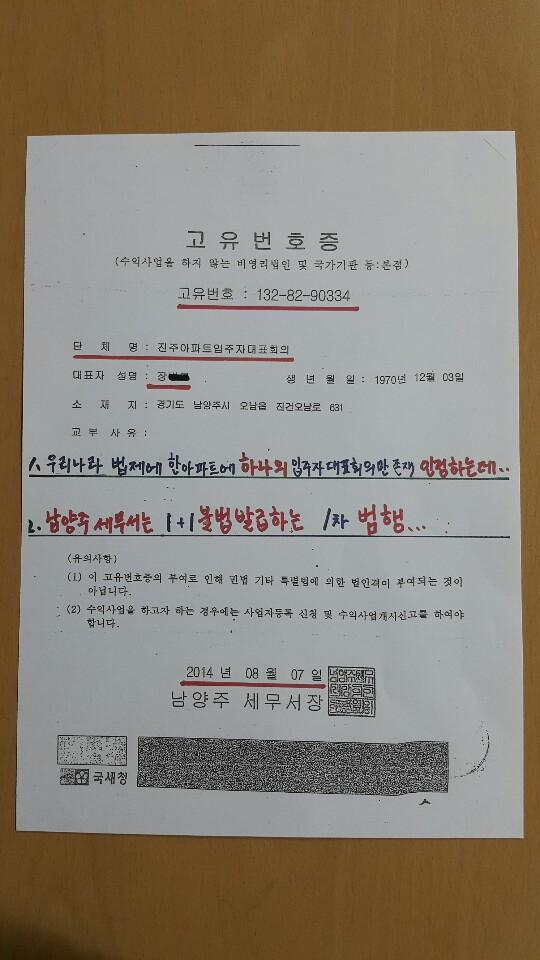 고유번호증
(수익사업을 하지 않는 비영리법인 및 국가기관 등:본점)
고유번호 : 132-82-90334
단 체 명 : 진주아파트입주자대표회의
대표자 성명 : 장 생 년 월 일 : 1970년 12월 03일
소 재 지 : 경기도 남양주시 오남읍 진건오남로 631
교 부 사 유 :
1. 우리나라 법제에 한아파트에 하나의 입주자대표회의만 존재 인정하는데..
2. 남양주 세무서는 1+1 불법발급하는 1차 범행...
(유의사항)
(1) 이 고유번호증의 부여로 인해 민법 기타 특별법에 의한 법인격이 부여되는 것이
아닙니다.
(2) 수익사업을 하고자 하는 경우에는 사업자등록 신청 및 수익사업개시신고를 하여야
합니다.
2014 년 08 월 07 일
남양주 세무서장
국세청